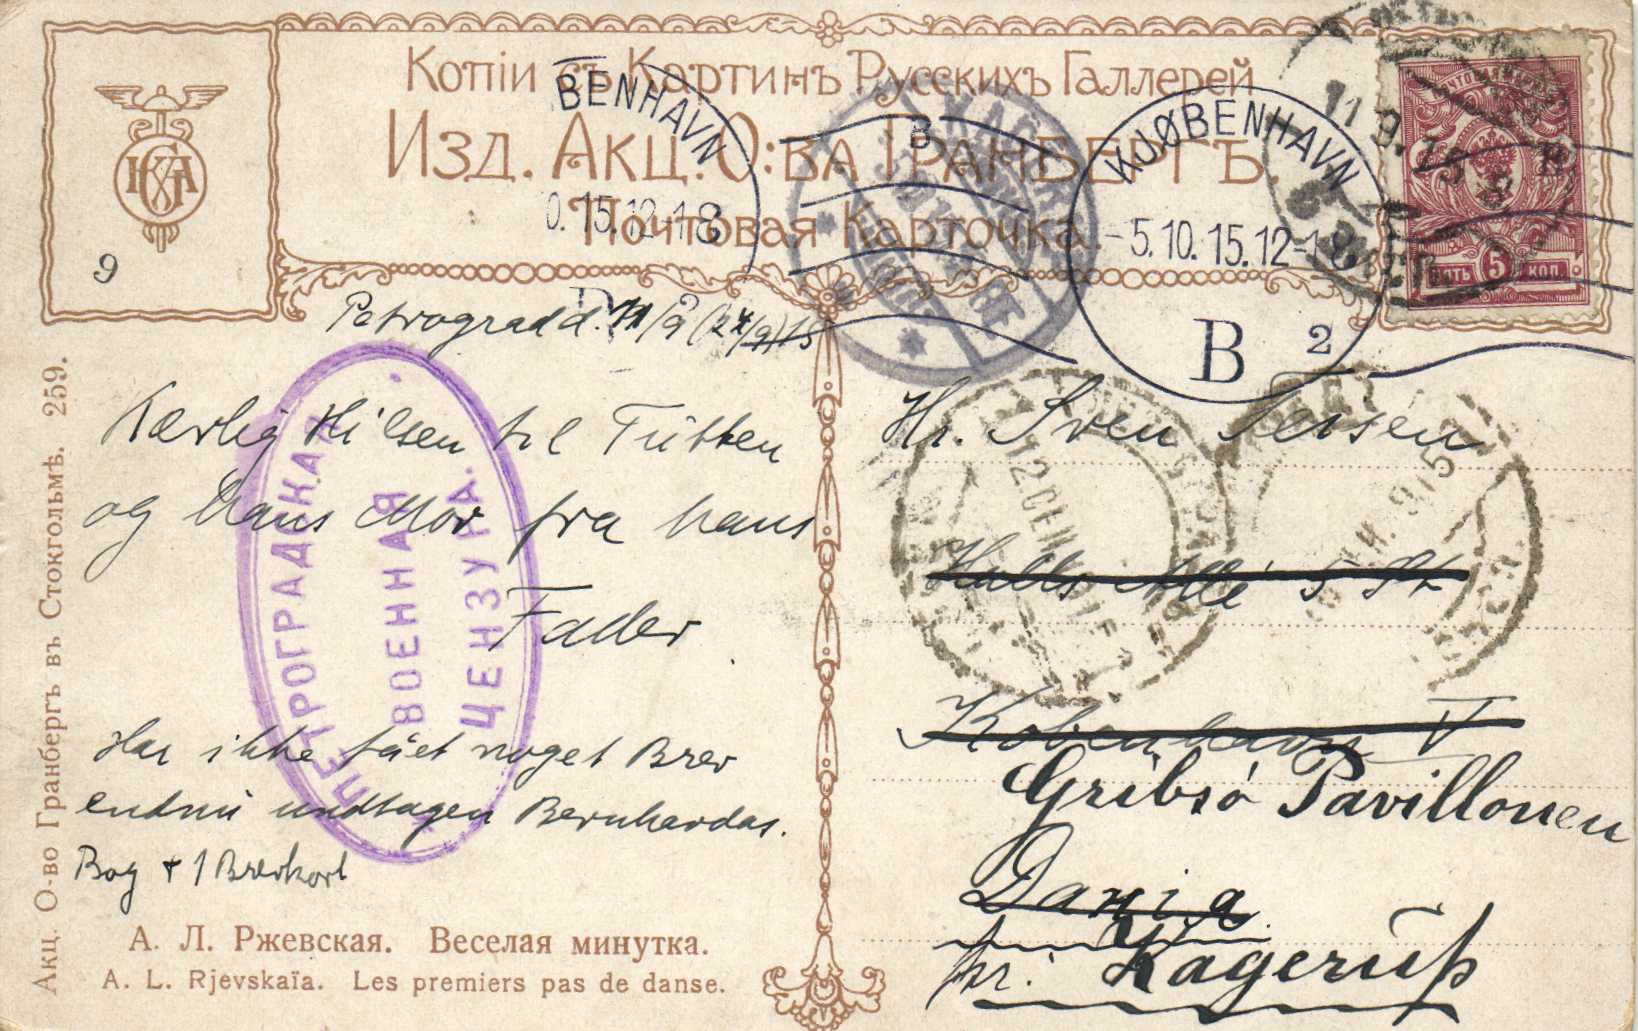 Копіи съ Картинъ Русскихъ Галлерей
Изд. Акц. О:ва Гранбергъ.
Почтовая Карточка.
9
BENHAVN
0.15.12-18
B
KJØBENHAVN
-5.10.15.12-18
B 2
11.9.15
ПЯТЬ 5 КОП.
Petrograd d. 11/9 (24/9) 15
Kærlig Hilsen til Tutten
og hans Mor fra hans
Fader
Har ikke fået noget Brev
endnu undtagen Bernhardas.
Bog + 1 Brevkort
ПЕТРОГРАДСКАЯ
ВОЕННАЯ
ЦЕНЗУРА.
Hr. Sven
Allé 5 St
København V
Gribsø Pavillonen
Данія
pr. Kagerup
Акц. О-во Гранбергъ въ Стокгольмѣ. 259.
А. Л. Ржевская. Веселая минутка.
A. L. Rjevskaïa. Les premiers pas de danse.